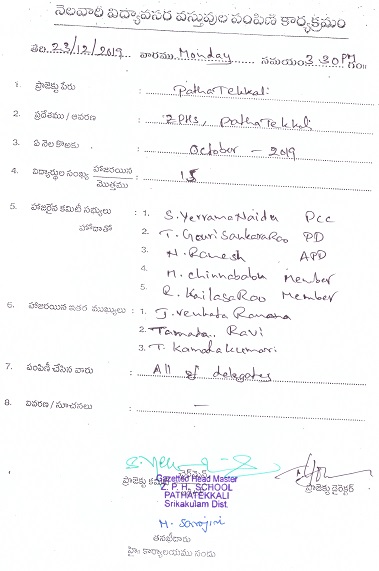 నెలవారీ విద్యావసర వస్తువుల పంపిణీ కార్యక్రమం
తేది. 23/12/2019 వారము Monday సమయం 3.30PM గం॥
1. ప్రాజెక్టు పేరు : PathaTekkali
2. ప్రదేశము / ఆవరణ : ZPHS, PathaTekkali
3. ఏ నెల కొఱకు : October - 2019
4. విద్యార్థుల సంఖ్య హాజరయిన / మొత్తము : 15
5. హాజరైన కమిటీ సభ్యులు : 1. S. Yerramanaidu PCC
హోదాతో 2. T. Gouri Sankara Rao PD
3. N. Ramesh APD
4. M. chinnababu Member
5. R. Kailasa Rao Member
6. హాజరయిన ఇతర ముఖ్యులు : 1. J. Venkata Ramana
2. Tamada. Ravi
3. T. Kamala kumari
7. పంపిణీ చేసిన వారు : All of delegates
8. వివరణ / సూచనలు : —
ప్రాజెక్టు డైరెక్టర్
Gazetted Head Master
Z. P. H. SCHOOL
PATHATEKKALI
Srikakulam Dist.
M. Sarojini
తనఖీదారు
హై కార్యాలయము నందు